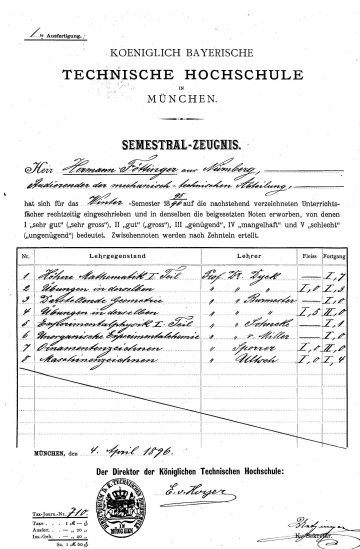 1te Ausfertigung.
KOENIGLICH BAYERISCHE
TECHNISCHE HOCHSCHULE
IN
MÜNCHEN.
SEMESTRAL-ZEUGNIS.
Herr Hermann Föttinger aus Nürnberg,
Studierender der mechanisch-technischen Abteilung,
hat sich für das Winter-Semester 1895/96 auf die nachstehend verzeichneten Unterrichts-
fächer rechtzeitig eingeschrieben und in denselben die beigesetzten Noten erworben, von denen
I „sehr gut“ („sehr gross“), II „gut“ („gross“), III „genügend“, IV „mangelhaft“ und V „schlecht“
(„ungenügend“) bedeutet. Zwischennoten werden nach Zehnteln erteilt.
Nr. Lehrgegenstand Lehrer Fleiss Fortgang
1 Höhere Mathematik I. Teil Prof. Dr. Dyck — I,7
2 Übungen in derselben " " " I,0 I,3
3 Darstellende Geometrie " " Burmester — I,0
4 Übungen in derselben " " " I,5 II,0
5 Experimentalphysik I. Teil " " Sohncke — I,1
6 Unorganische Experimentalchemie " " v. Miller — I,0
7 Ornamentenzeichnen " Sporrer I,0 II,0
8 Maschinenzeichnen " Ultsch I,0 I,4
MÜNCHEN, den 4. April 1896.
Der Director der Königlichen Technischen Hochschule:
E. v. Hoyer
Tax-Journ.-Nr. 710.
Taxe
Ausfert.
Ins.-Geb.
K. Sekretär.